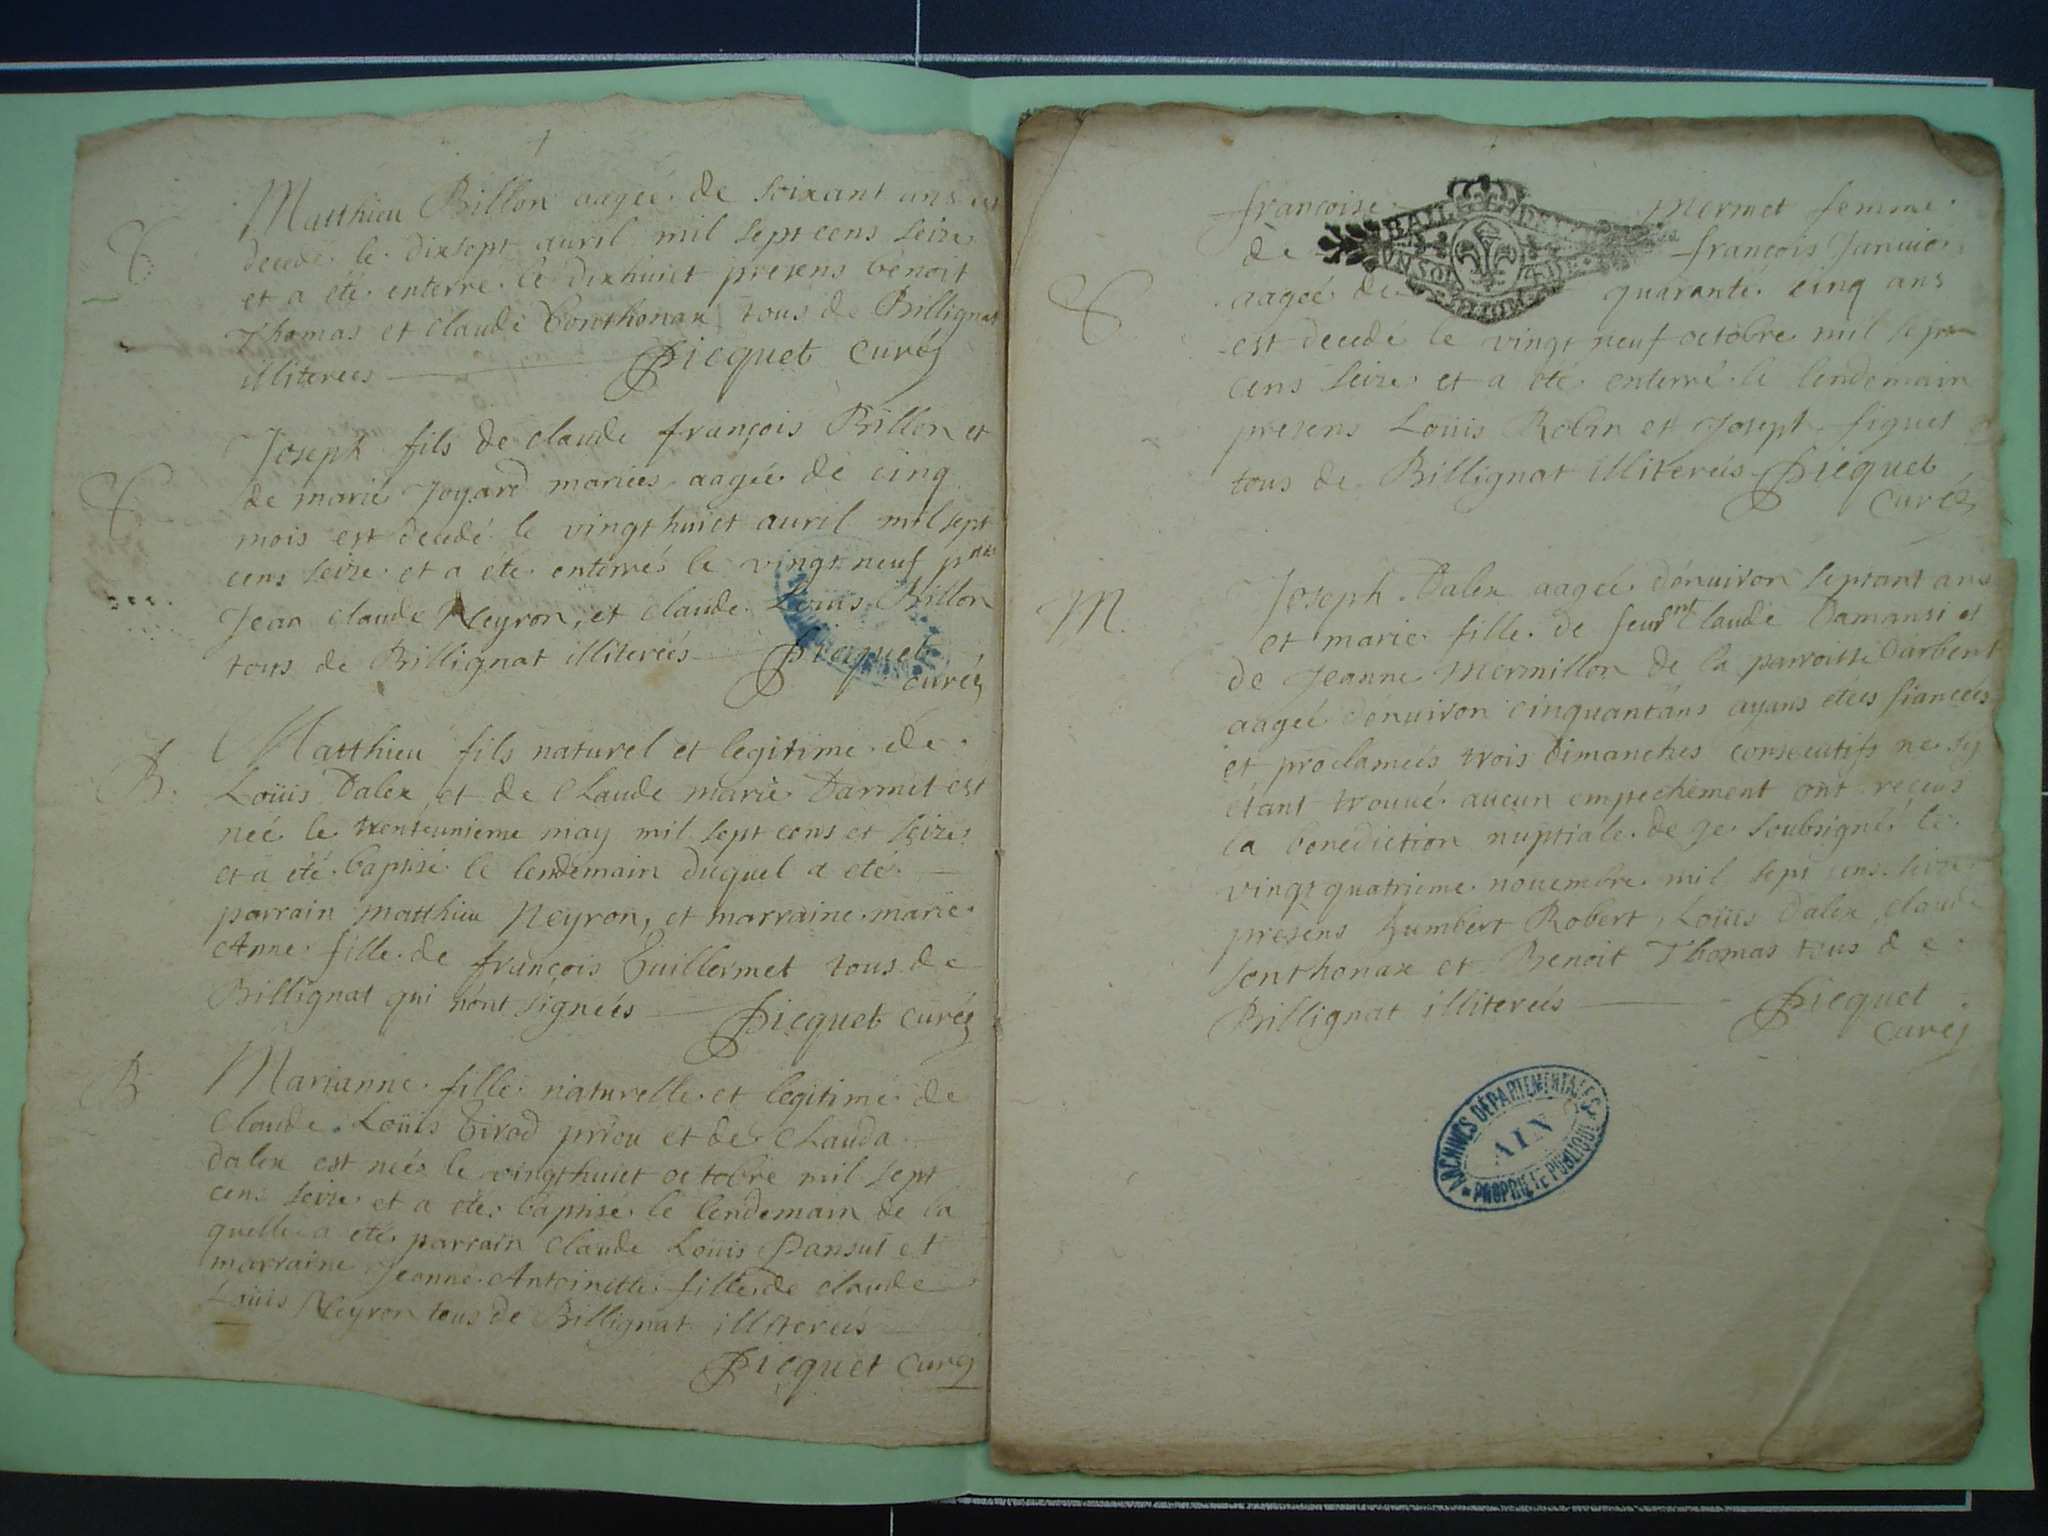 Matthieu Billon aageé de soixant ans est
decedé le dixsept auril mil sept cens seize
et a été enterré le dixhuict presens benoit
Thomas et claude Sonthonax tous de Billignat
illitereés Picquet Curéz
Joseph fils de claude françois Billon et
de marie Joyard mariées aageé de cinq
mois est decedé le vingt huict auril mil sept
cens seize et a été enterrés le vingt neuf pns
Jean claude Neyron, et claude Loüis Billon
tous de Billignat illitereés Picquet
curéz
B. Matthieu fils naturel et legitime de
Loüis Dalex et de claude marie Darmet est
neé le trenteunieme may mil sept cens et seize
et a été baptisé le lendemain duquel a eté
parrain matthieu Neyron, et marraine marie
Anne fille de françois Guillermet tous de
Billignat qui n'ont signeés Picquet curéz
B. Marianne fille naturelle et legitime de
Claude Loüis Girod priou et de Clauda
dalex est neés le vingthuict octobre mil sept
cens seize et a eté baptisé le lendemain de la
quelle a eté parrain claude Loüis Pansut et
marraine Jeanne Antoinette fille de claude
Loüis Neyron tous de Billignat illitereés
Picquet curéz
françoise mermet femme
de françois Januier
aageé de quarante cinq ans
est decedé le vingt neuf octobre mil sept
cens seize et a eté enterré le lendemain
presens Loüis Robin et Joseph figuet
tous de Billignat illitereés Picquet
Curéz
M. Joseph Dalex aageé d'enuiron septant ans
et marie fille de feu claude Damansi et
de Jeanne Mermillon de la parroisse Darbent
aageé d'enuiron cinquantans ayans étées fianceés
et proclameés trois dimanches consecutifs ne sy
étant trouué aucun empechement ont reçeus
la benediction nuptiale de je soubsigné le
vingt quatrieme nouembre mil sept cens seize
presens humbert Robert, Loüis dalex claude
sonthonax et Benoit Thomas tous de
Billignat illitereés Picquet
Curéz
ARCHIVES DÉPARTEMENTALES
AIN
PROPRIÉTÉ PUBLIQUE